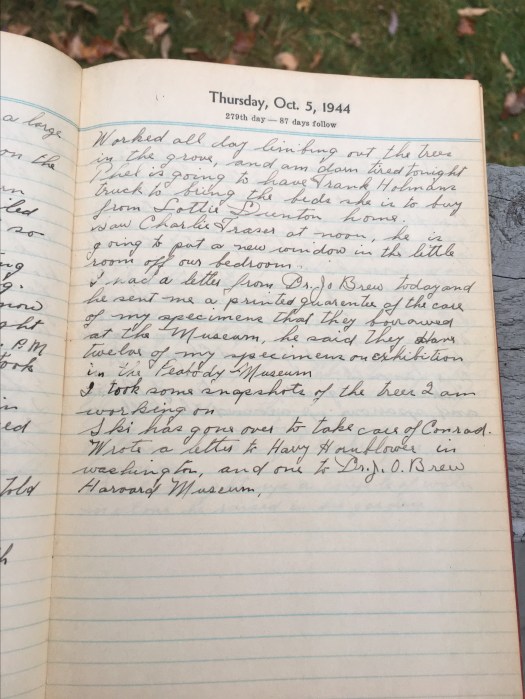 a large
on the
rn
iled
so
ng
g.
now
ght
P.M
took
in
ed
told
h
Thursday, Oct. 5, 1944
279th day — 87 days follow
Worked all day limbing out the trees
in the grove, and am darn tired tonight
Phel is going to have Frank Holmans
truck to bring the beds she is to buy
from Lottie Drenton home.
Saw Charlie Fraser at noon, he is
going to put a new window in the little
room off our bedroom.
I had a letter from Dr. Jo Brew today and
he sent me a printed guarentee of the care
of my specimens that they borrowed
at the Museum, he said they have
twelve of my specimens on exhibition
in the Peabody Museum
I took some snapshots of the trees I am
working on
Ski has gone over to take care of Conrad.
Wrote a letter to Harry Hornblower in
washington, and one to Dr. J. O. Brew
Harvard Museum,